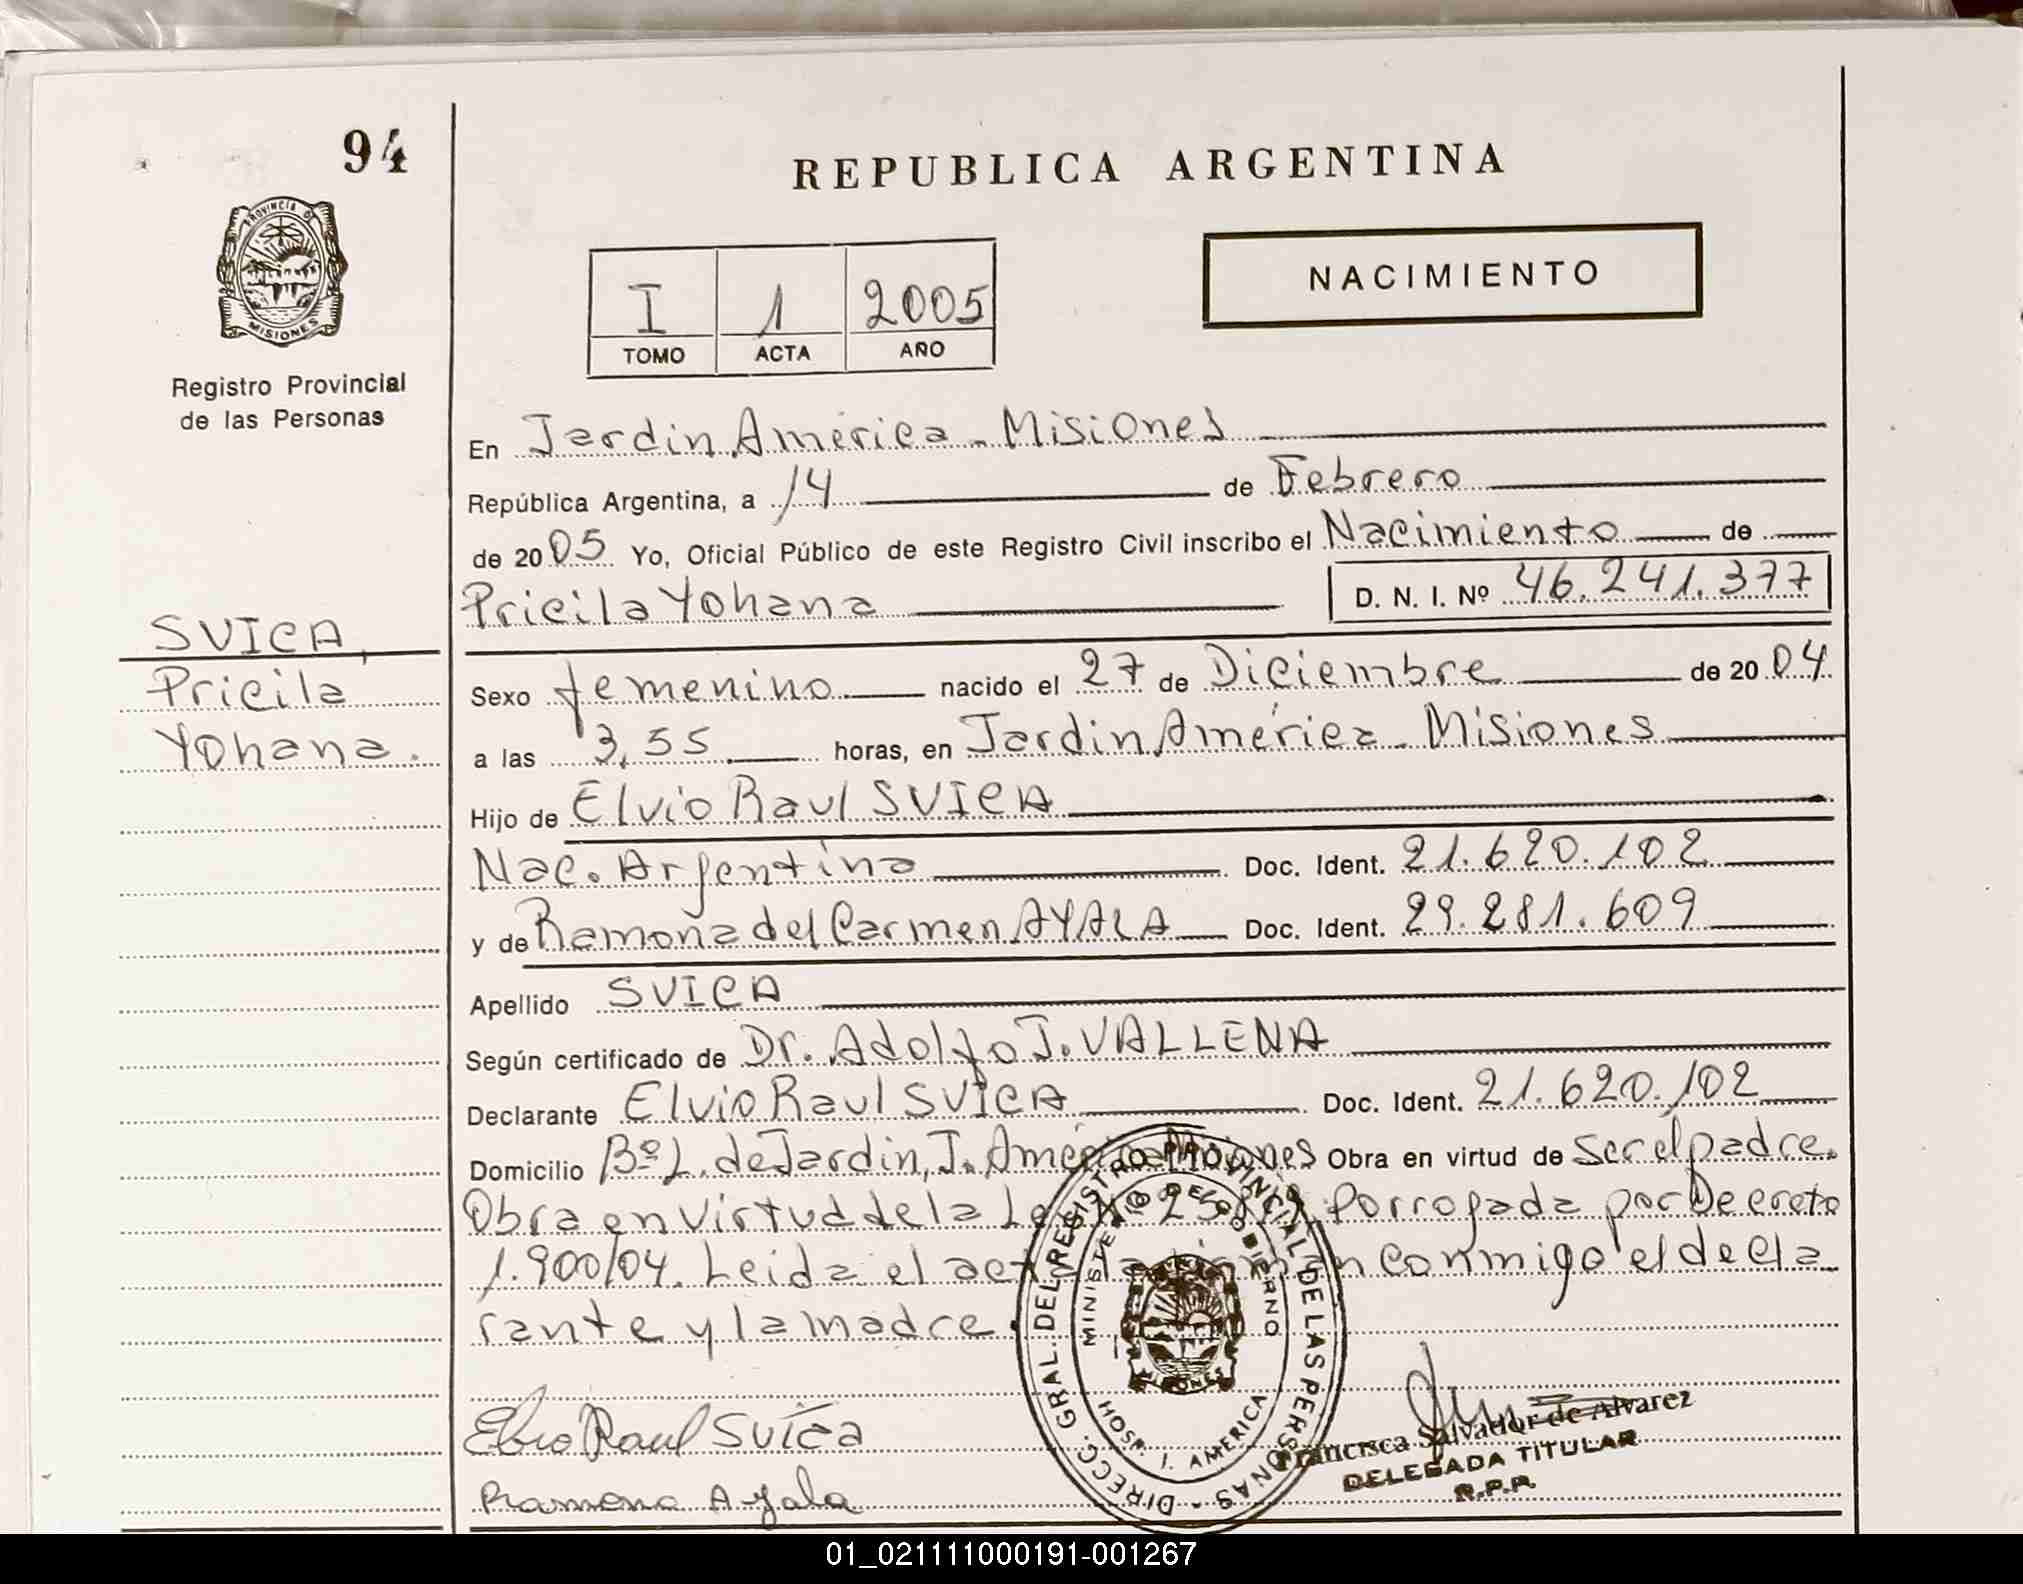 94
REPUBLICA ARGENTINA
PROVINCIA DE
MISIONES
Registro Provincial
de las Personas
NACIMIENTO
I 1 2005
TOMO ACTA AÑO
En Jardin América - Misiones
República Argentina, a 14 de Febrero
de 2005 Yo, Oficial Público de este Registro Civil inscribo el Nacimiento de
Pricila Yohana D. N. I. Nº 46.241.377
SVICA,
Pricila
Yohana.
Sexo femenino nacido el 27 de Diciembre de 2004
a las 3,55 horas, en Jardin América - Misiones
Hijo de Elvio Raul SVICA
Nac. Argentina Doc. Ident. 21.620.102
y de Ramona del Carmen AYALA Doc. Ident. 29.281.609
Apellido SVICA
Según certificado de Dr. Adolfo J. VALLENA
Declarante Elvio Raul SVICA Doc. Ident. 21.620.102
Domicilio Bº L. de Jardin, J. América Misiones Obra en virtud de ser el padre.
Obra en virtud de la Ley Nº Porrogada por Decreto
1.900/04. Leida el acta la firman conmigo el decla
rante y la madre.
DIRECC. GRAL. DEL REGISTRO PROVINCIAL DE LAS PERSONAS -
MINISTERIO DE GOBIERNO
HOSP. J. AMERICA
MISIONES
Elvio Raul Svica
Ramona Ayala
Francisca Salvador de Alvarez
DELEGADA TITULAR
R.P.P.
01_021111000191-001267